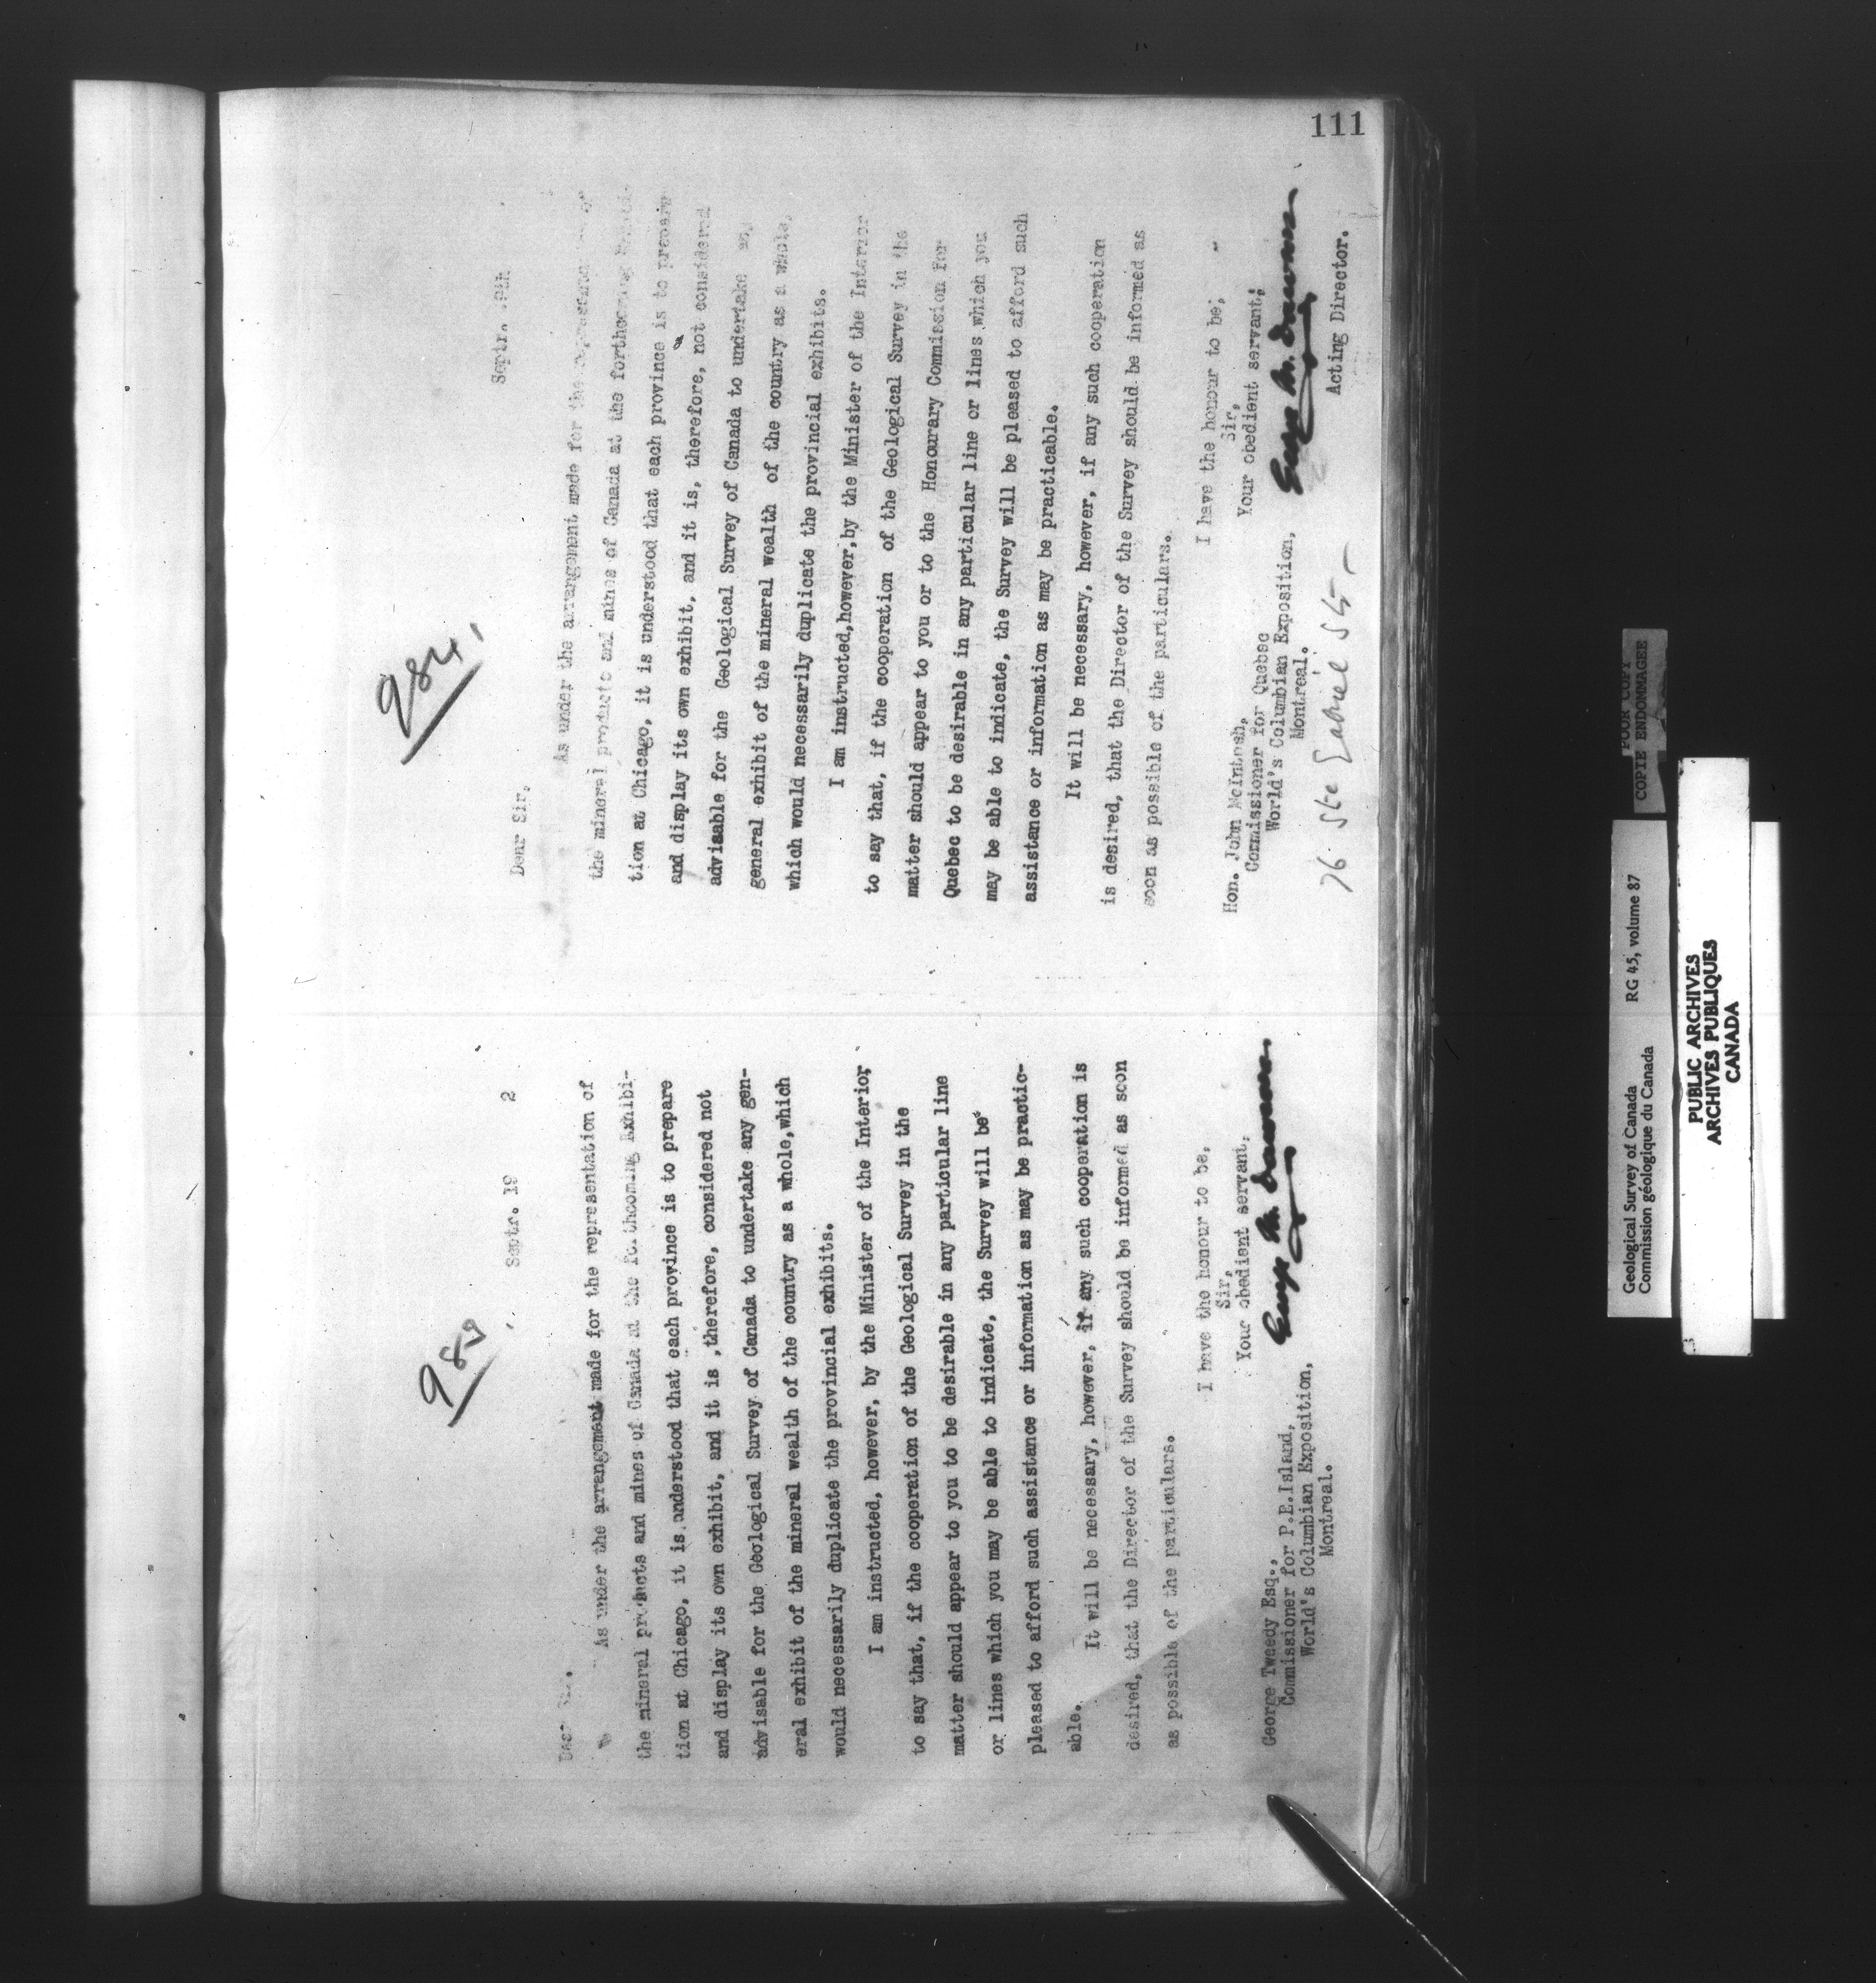 111
985
Septr. 19 2
As under the arrangement made for the representation of
the mineral products and mines of Canada at the forthcoming Exhibi-
tion at Chicago, it is understood that each province is to prepare
and display its own exhibit, and it is ,therefore, considered not
advisable for the Geological Survey of Canada to undertake any gen-
eral exhibit of the mineral wealth of the country as a whole,which
would necessarily duplicate the provincial exhibits.
I am instructed, however, by the Minister of the Interior,
to say that, if the cooperation of the Geological Survey in the
matter should appear to you to be desirable in any particular line
or lines which you may be able to indicate, the Survey will be
pleased to afford such assistance or information as may be practic-
able.
It will be necessary, however, if any such cooperation is
desired, that the Director of the Survey should be informed as soon
as possible of the particulars.
I have the honour to be,
Sir,
Your obedient servant,
George M. Dawson
George Tweedy Esq.,
Commissioner for P.E.Island,
World's Columbian Exposition,
Montreal.
984
Septr.
Dear Sir,
As under the arrangement made for the
the mineral products and mines of Canada at the forthcoming
tion at Chicago, it is understood that each province is to prepare
and display its own exhibit, and it is, therefore, not considered
advisable for the Geological Survey of Canada to undertake any
general exhibit of the mineral wealth of the country as a whole,
which would necessarily duplicate the provincial exhibits.
I am instructed,however,by the Minister of the Interior
to say that, if the cooperation of the Geological Survey in the
matter should appear to you or to the Honourary Commission for
Quebec to be desirable in any particular line or lines which you
may be able to indicate, the Survey will be pleased to afford such
assistance or information as may be practicable.
It will be necessary, however, if any such cooperation
is desired, that the Director of the Survey should be informed as
soon as possible of the particulars.
I have the honour to be,
Sir,
Your obedient servant,
George M. Dawson
Acting Director.
Hon. John McIntosh,
Commissioner for Quebec
World's Columbian Exposition,
Montreal.
76 St
Geological Survey of Canada RG 45, volume 87
Commission géologique du Canada
POOR COPY
COPIE ENDOMMAGEE
PUBLIC ARCHIVES
ARCHIVES PUBLIQUES
CANADA